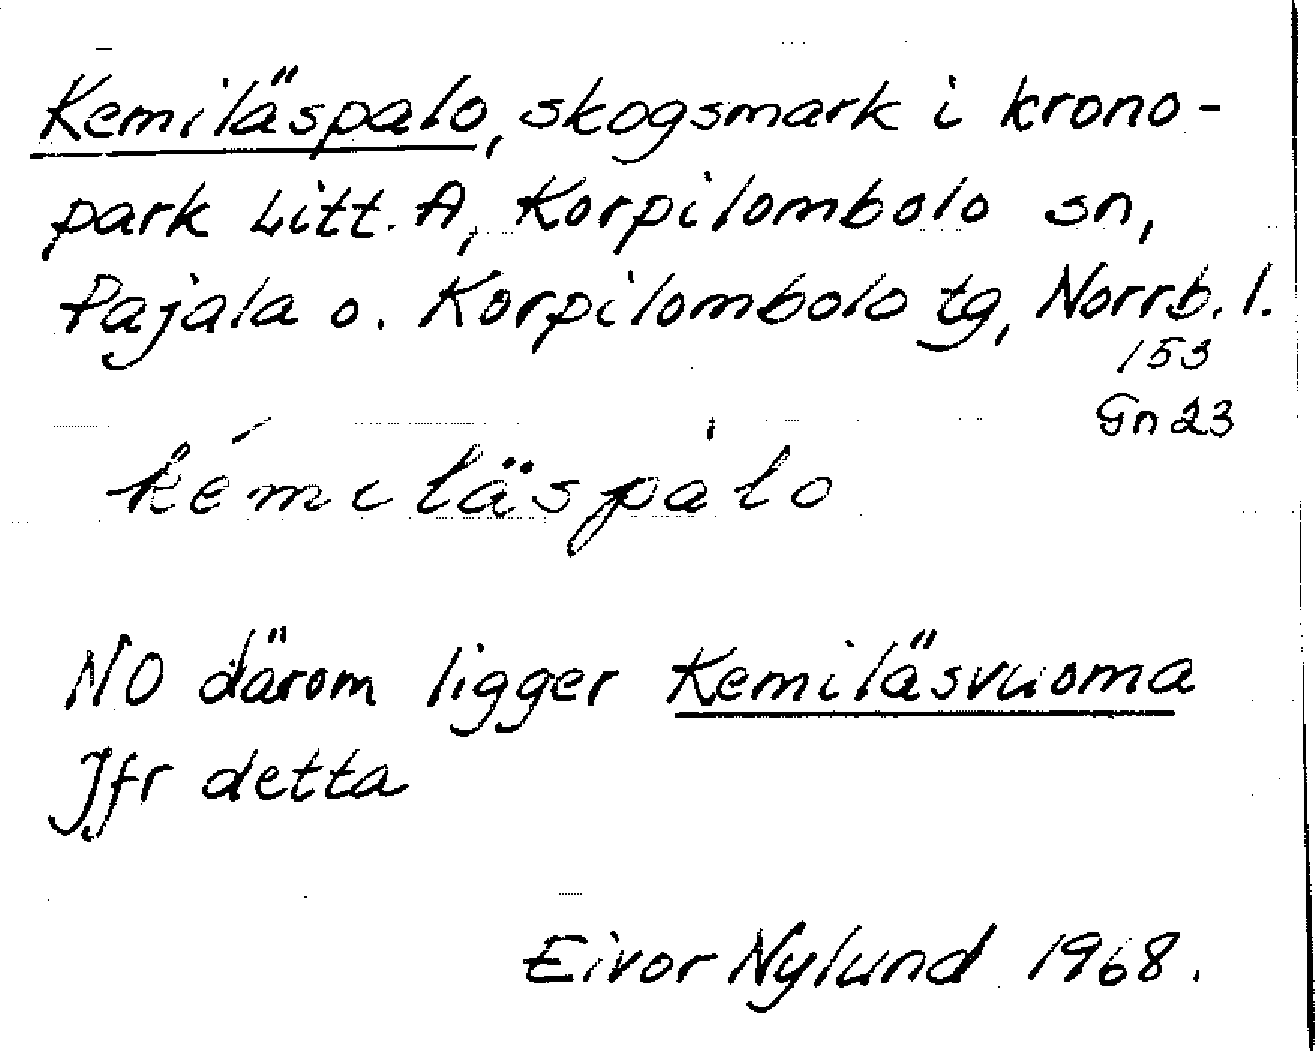 Kemiläspalo, skogsmark i krono-
park Litt. A, Korpilombolo sn,
Pajala o. Korpilombolo tg, Norrb. l.
153
Gn 23
kémiläspàlo
NO därom ligger Kemiläsvuoma
Jfr detta
Eivor Nylund 1968.